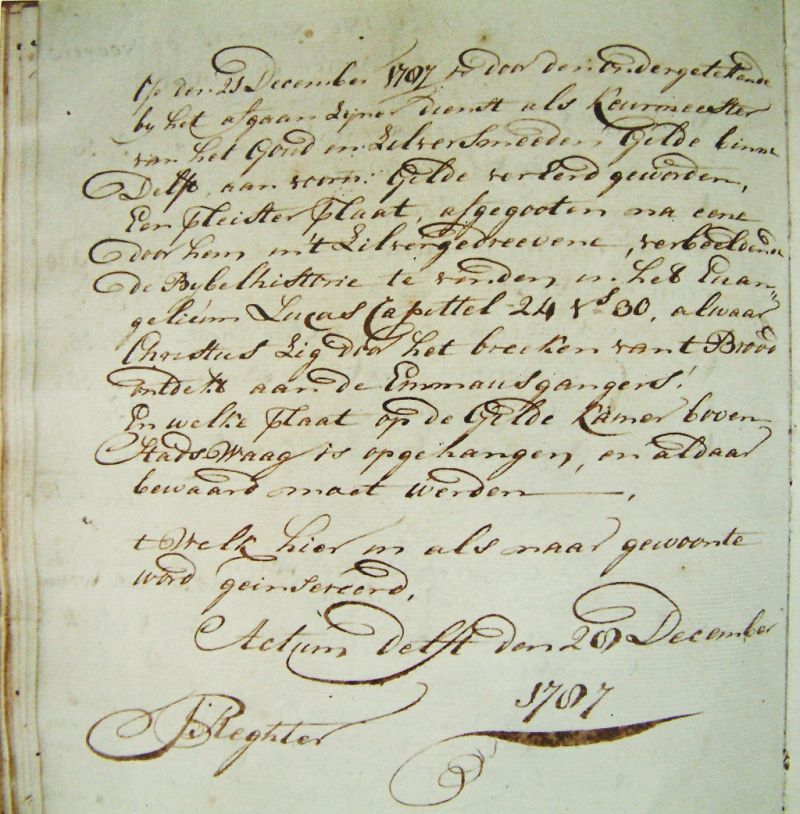 Op den 21 December 1787 is door den ondergetekende
by het afgaan zyner dienst als Keurmeester
van het Goud en Zilversmeeden Gilde binne
Delft, aan voorn: Gilde vereerd geworden,
Een pleister plaat, afgegooten na eene
door hem in't Zilver gedreevene, verbeeldende
de Bybelhistorie te vinden, in het Euan„
gelium Lucas Capittel 24 vs 30, alwaar
Christus Zig door het breeken van t Brood
ontdekt aan de Emmausgangers!
En welke plaat op de Gilde Kamer boven
Stads Waag is opgehangen, en aldaar
bewaard moet werden.
t Welk hier in als naar gewoonte
word geinsereerd,
Actum Delft den 28 December
1787
Reghter